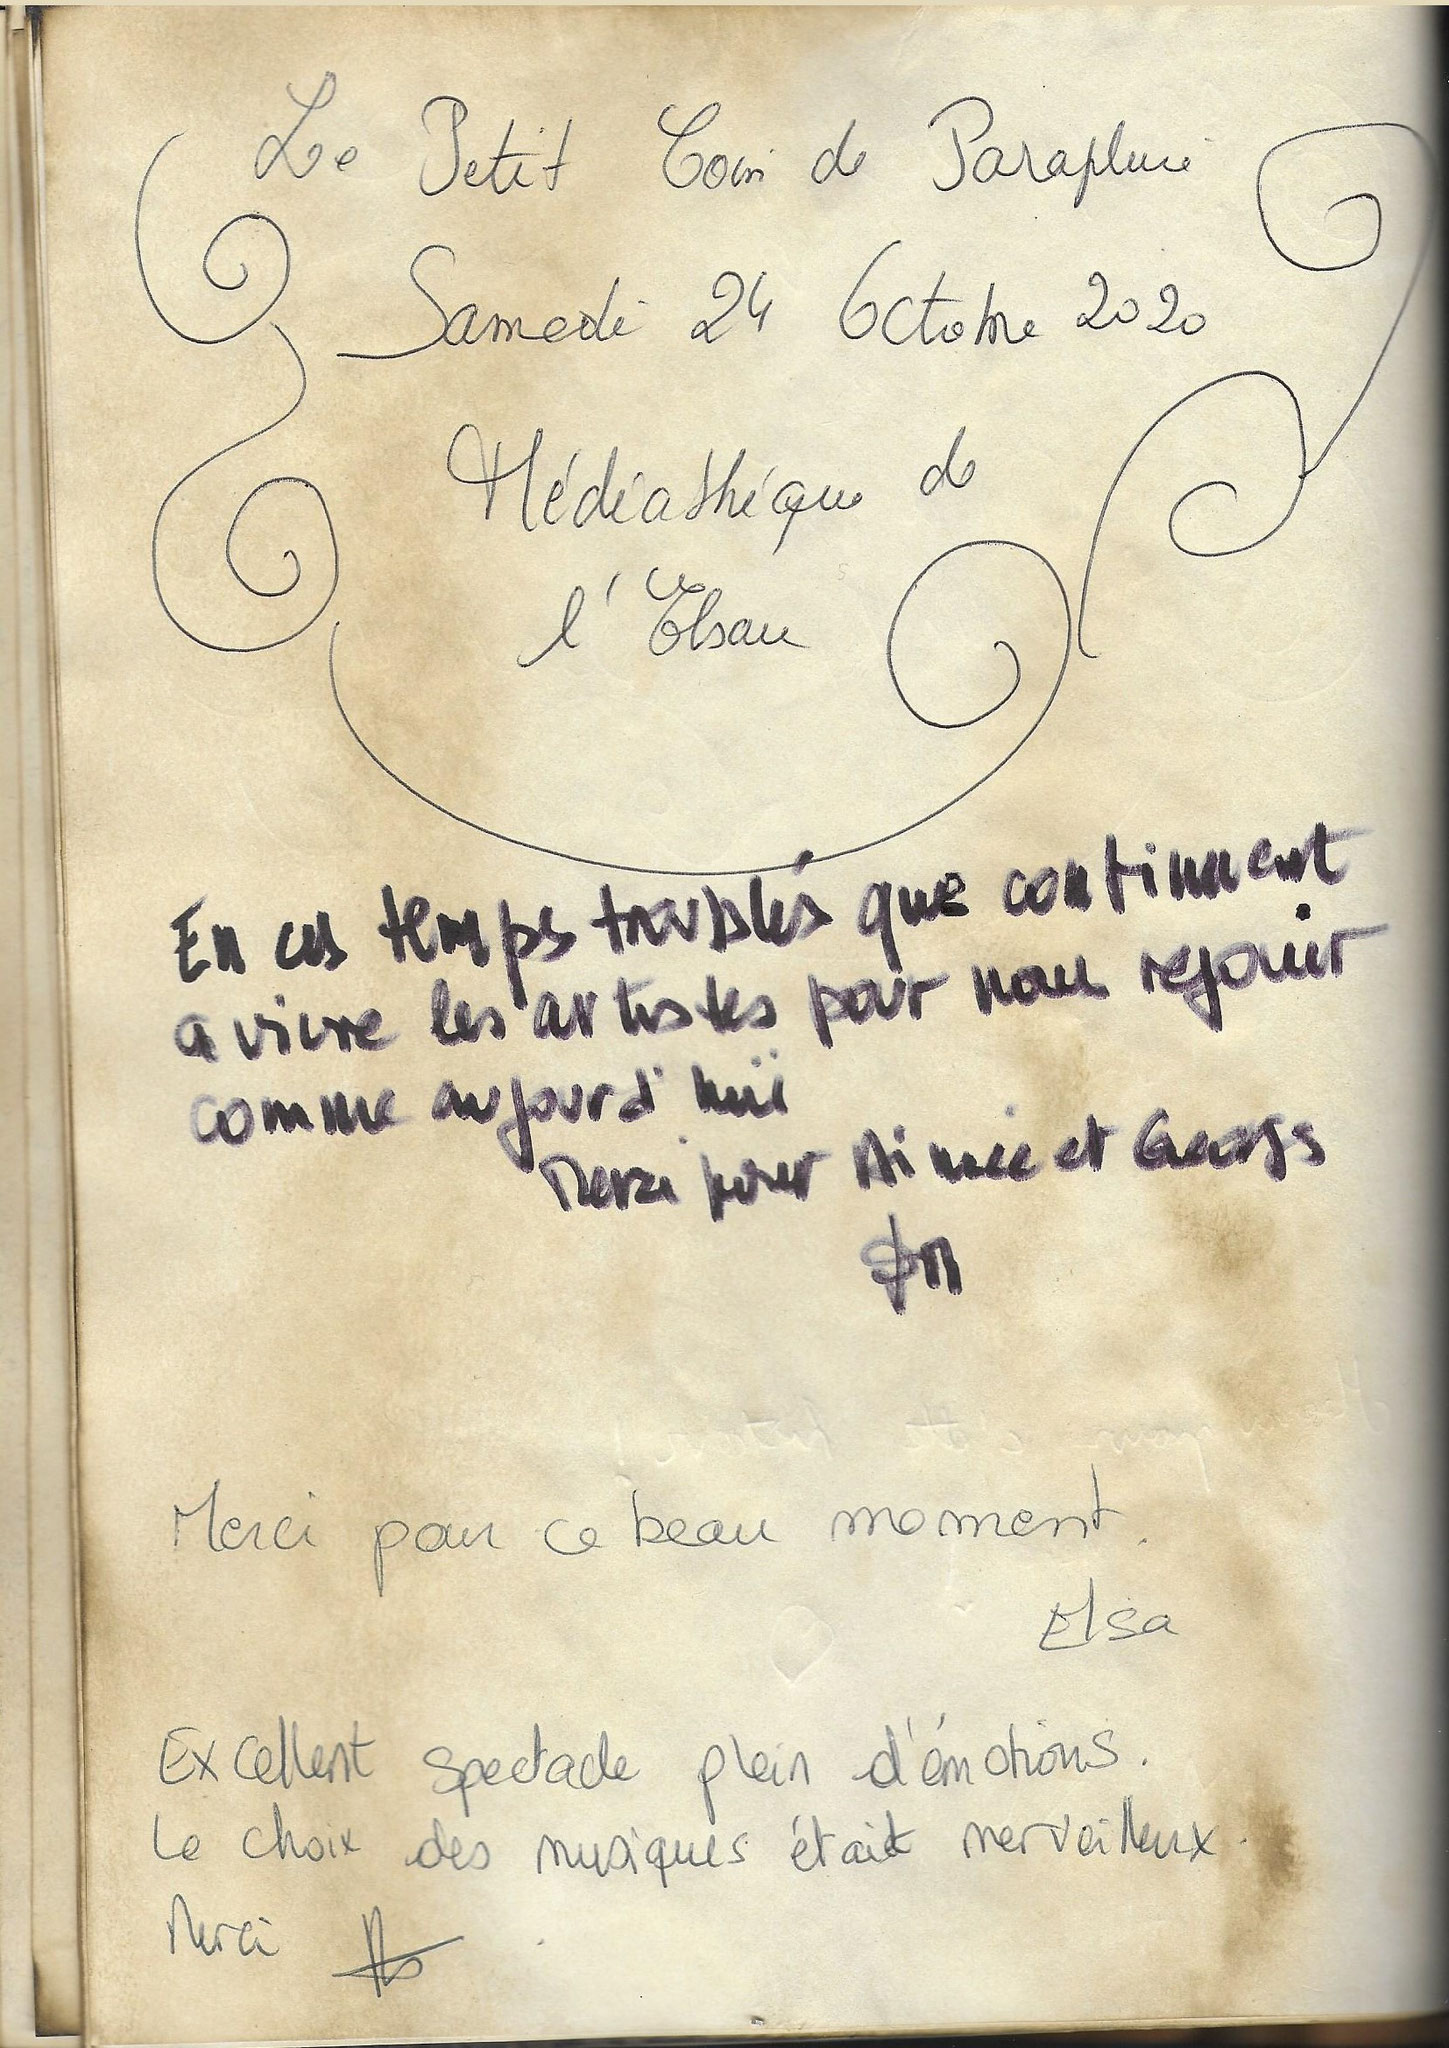 Le Petit Coin de Parapluie
Samedi 24 Octobre 2020
Médiathéque de
l'Elsau
En ces temps troublés que continuent
a vivre les artistes pour nous rejouir
comme aujourd'hui
Merci pour Aimée et Georges
Merci pour ce beau moment.
Elsa
Excellent spectacle plein d'émotions.
Le choix des musiques était merveilleux.
Merci